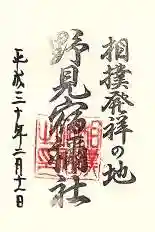 相撲発祥の地
野見宿禰社
平成三十年二月十一日